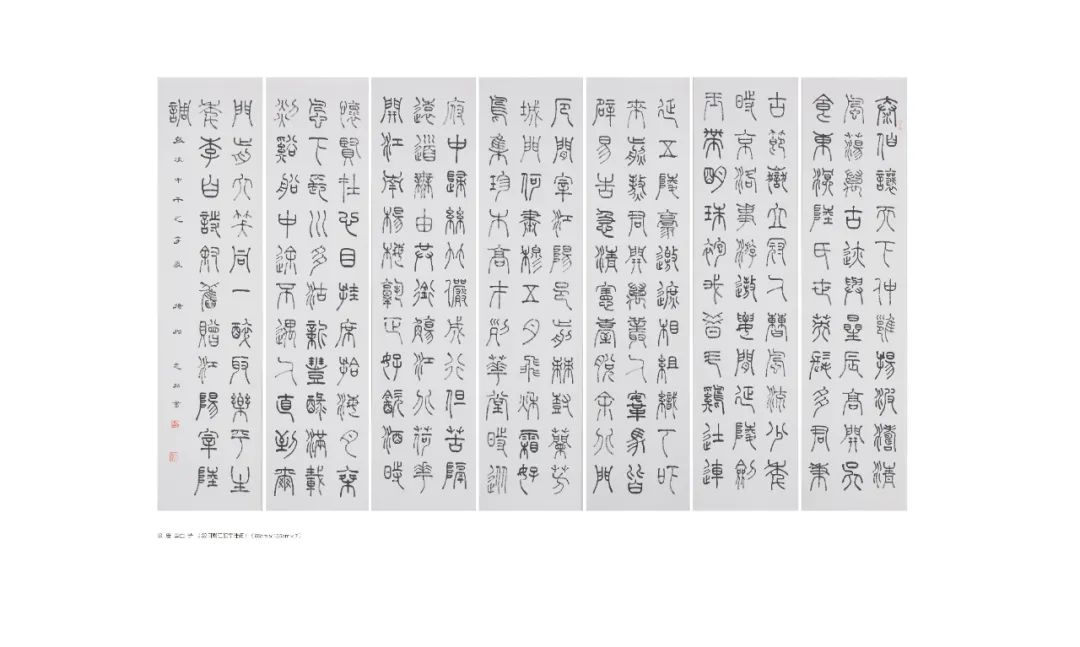 泰伯讓天下仲雍揚波濤清
風蕩萬古迹與星辰高開吳
食東溟陸氏世英髦多君秉
古節嶽立冠人曹風流少年
時京洛事游遨腰間延陵劍
玉帶明珠袍我昔鬥雞徒連
延五陵豪邀遮相組織呵吓
來煎熬君開萬叢人鞍馬皆
辟易告急清憲臺脫余北門
厄間宰江陽邑剪棘樹蘭芳
城門何肅穆五月飛秋霜好
鳥集珍木高才列華堂時從
府中歸絲竹儼成行但苦隔
遠道無由共銜觴江北荷華
開江南楊梅熟正好飲酒時
懷賢在心目挂席拾海月乘
風下長川多沽新豐醁滿載
剡谿船中途不遇人直到爾
門前大笑同一醉取樂平生
年李白詩敘舊贈江陽宰陸
調